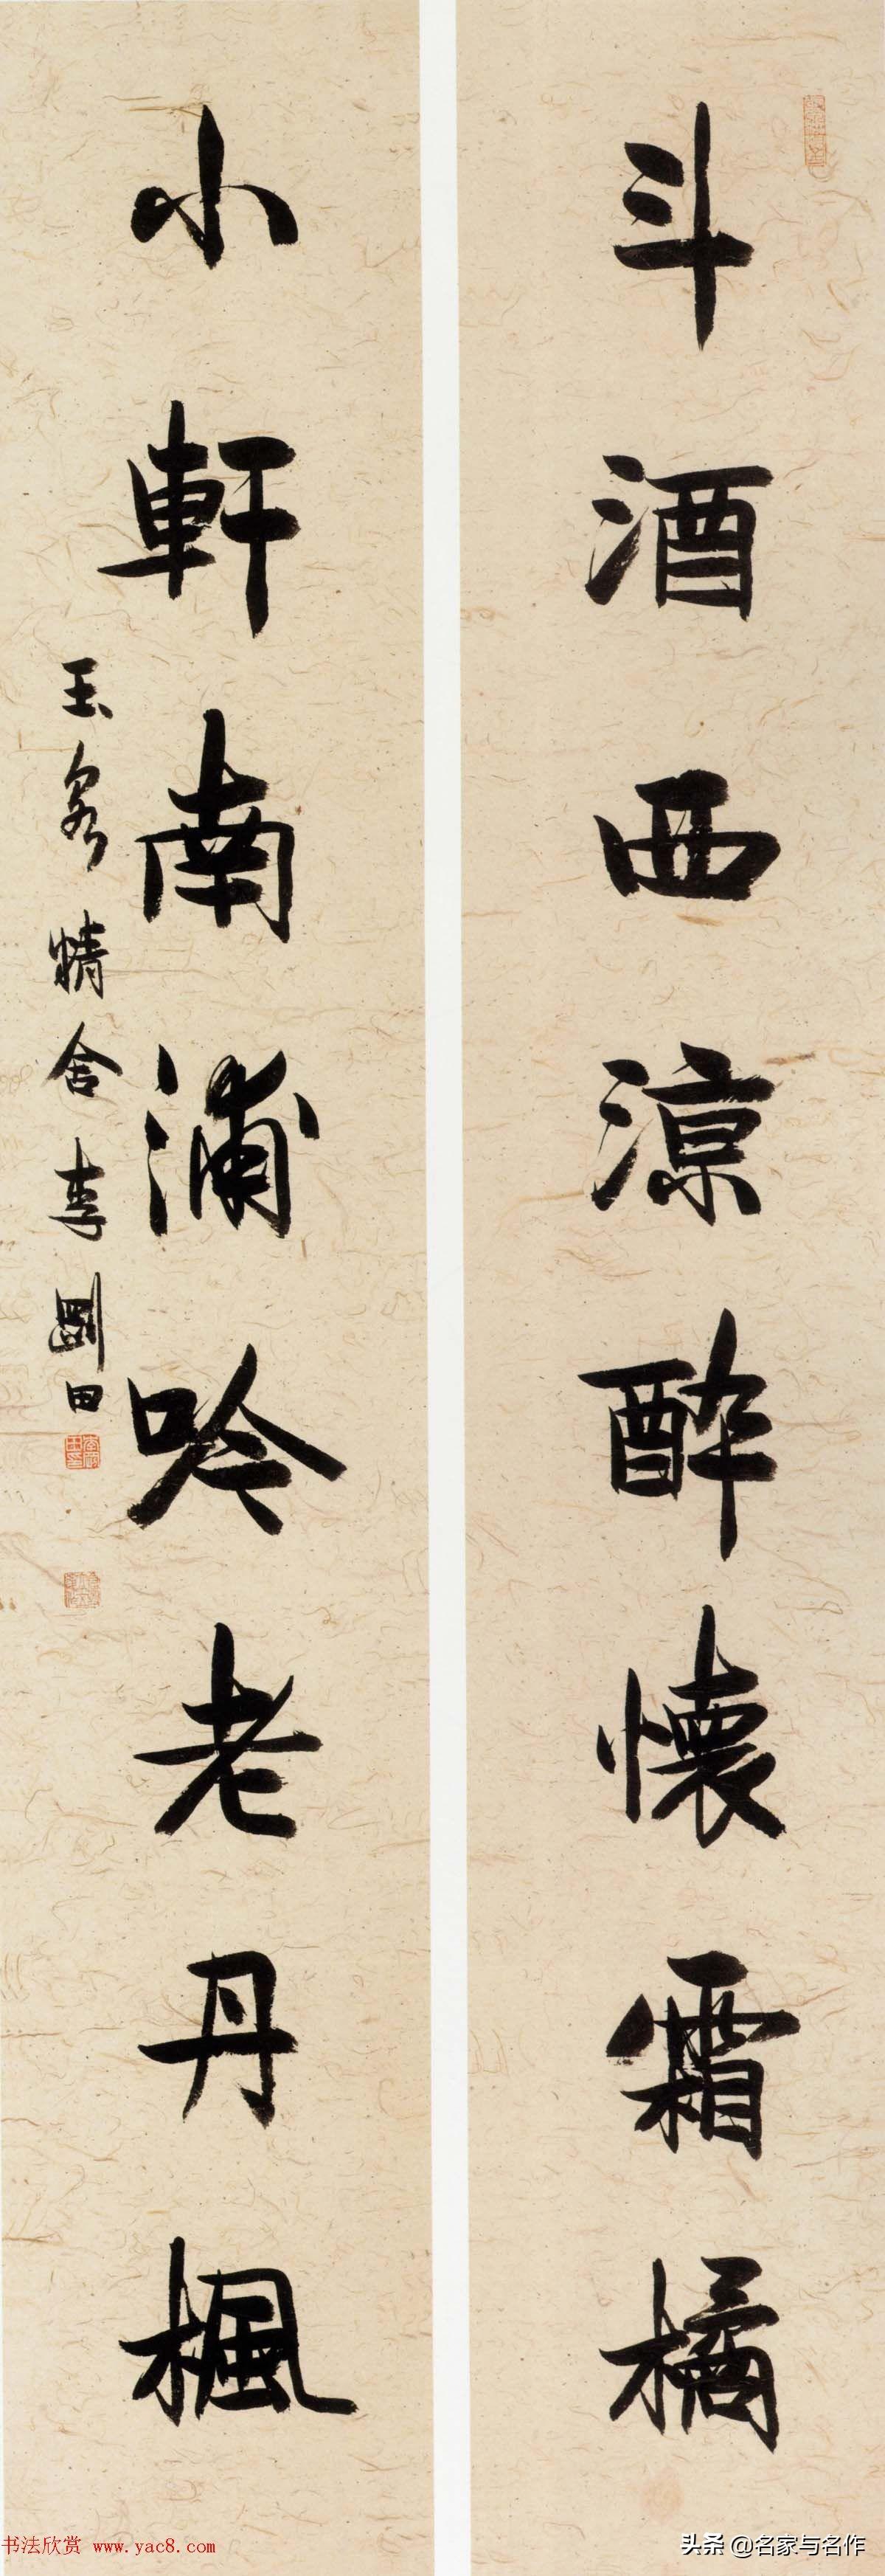 斗酒西涼醉懷霜橘
小軒南浦吟老丹楓
玉泉精舍李剛田
书法欣赏 www.yac8.com
头条 @名家与名作